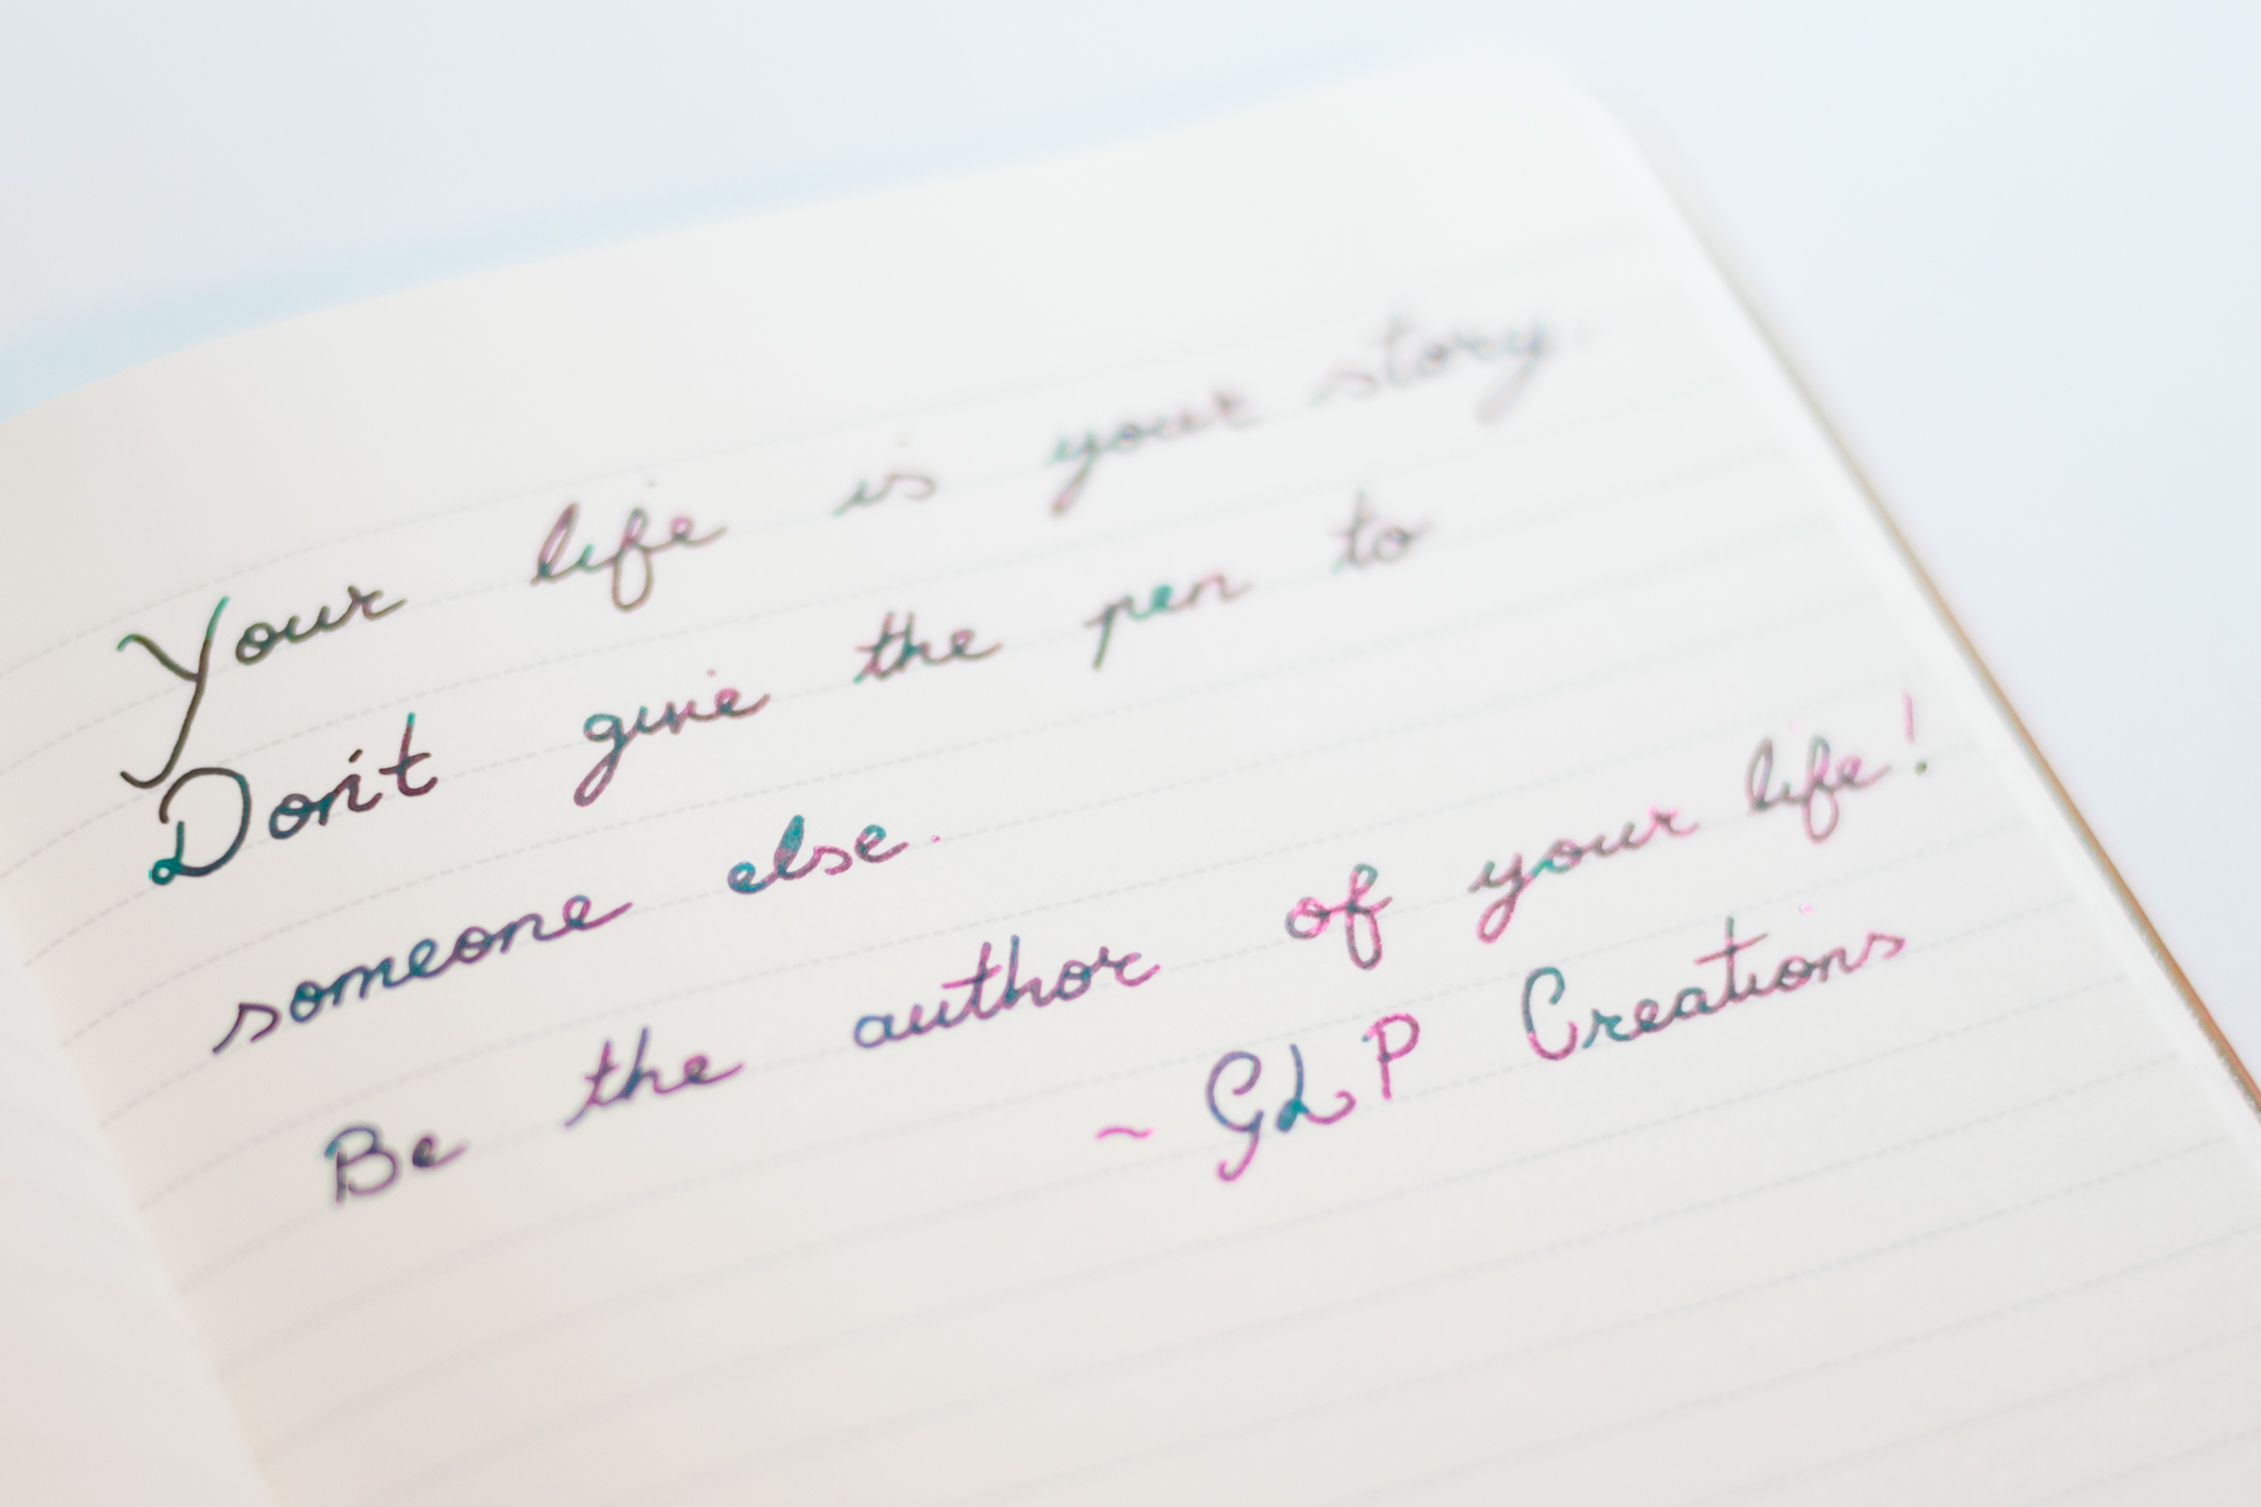 Your life is your story.
Don't give the pen to
someone else.
Be the author of your life!
~ GLP Creations